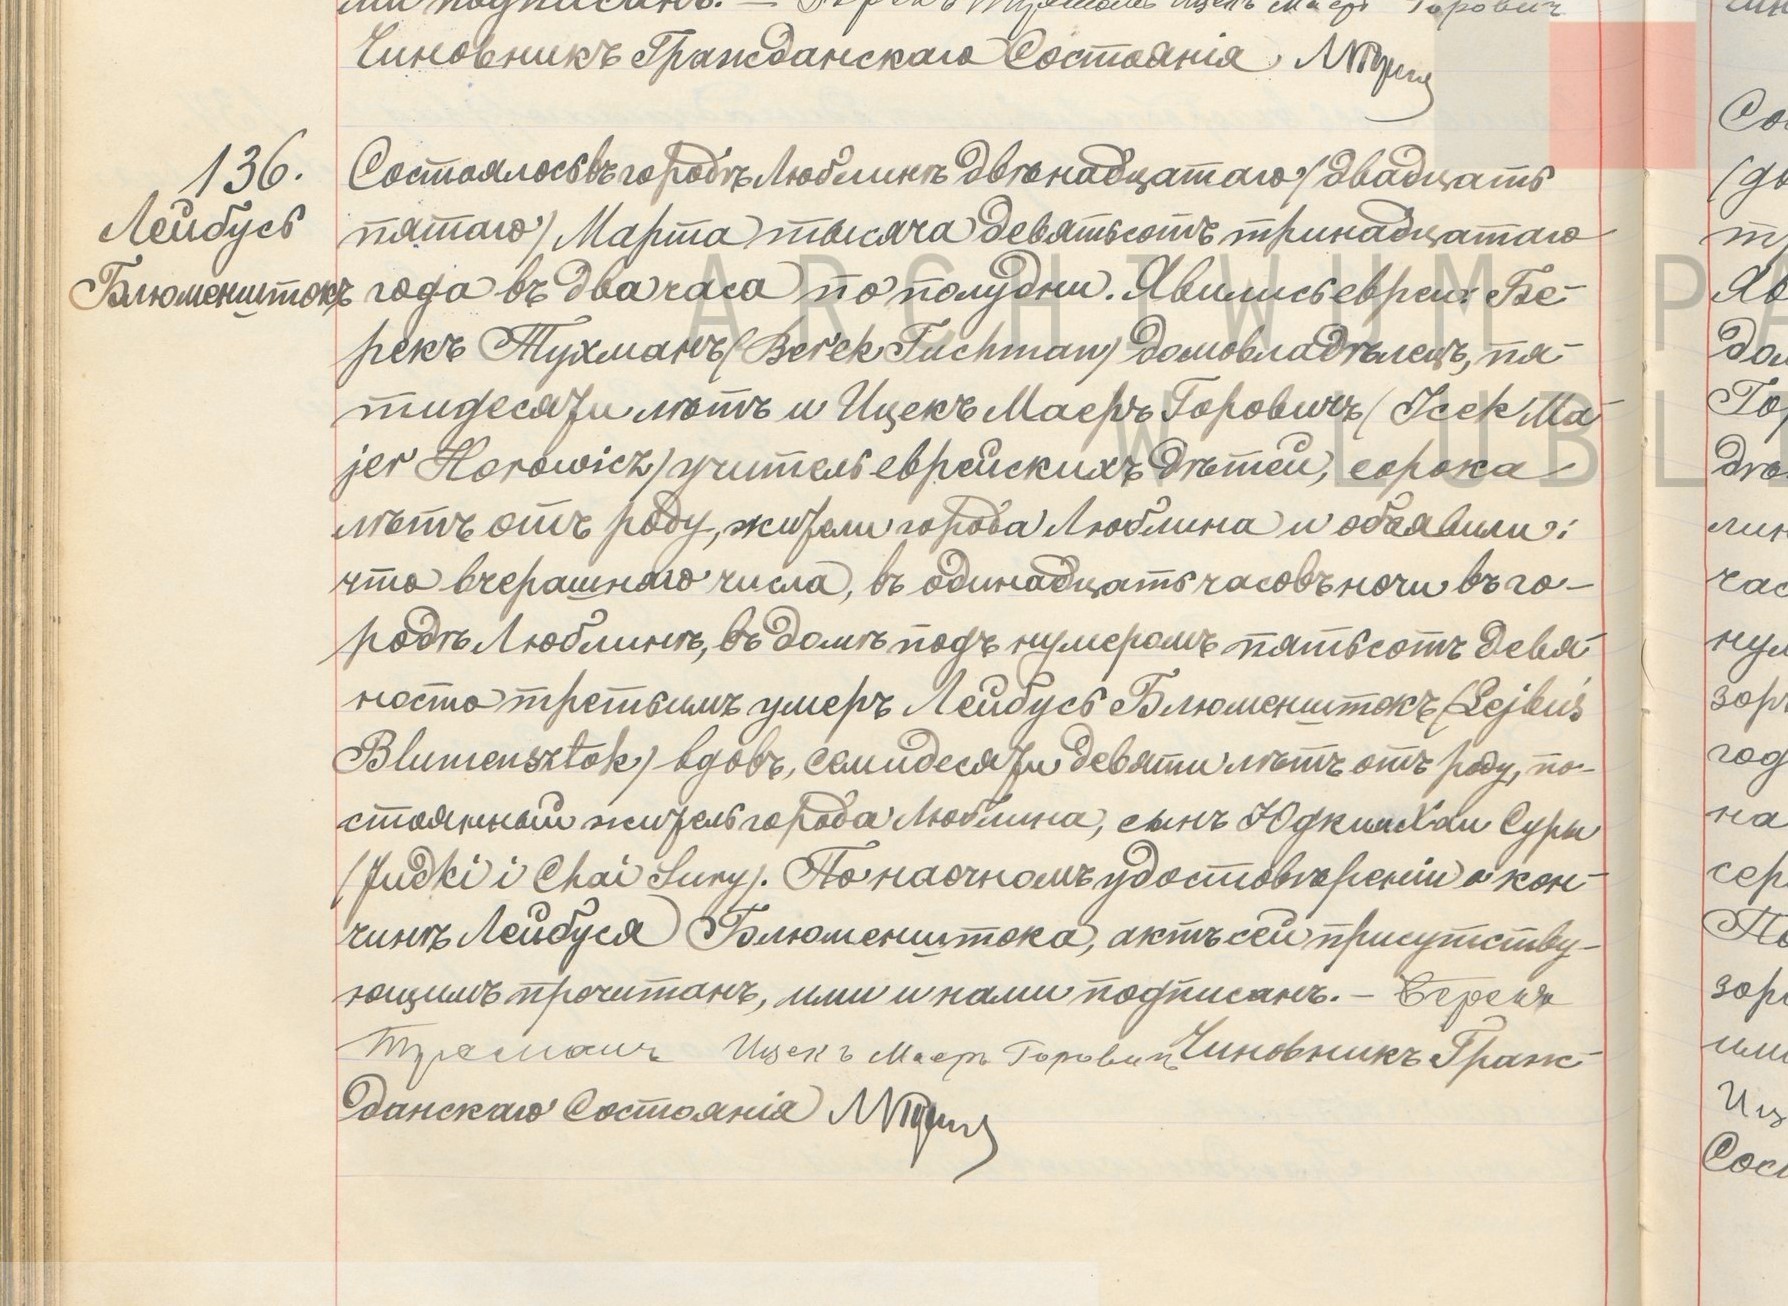 ми подписанъ. — Берекъ Тухманъ Ицекъ Маеръ Горовичъ
Чиновникъ Гражданскаго Состоянія
136.
Лейбусь
Блюменштокъ
Состоялось въ городѣ Люблинѣ двѣнадцатаго (двадцать
пятаго) Марта тысяча девятьсотъ тринадцатаго
года въ два часа по полудни. Явились евреи: Бе-
рекъ Тухманъ (Berek Tuchman) домовладѣлецъ, пя-
тидесяти лѣтъ и Ицекъ Маеръ Горовичъ (Icek Ma-
jer Horowicz) учитель еврейскихъ дѣтей, сорока
лѣтъ отъ роду, жители города Люблина и объявили:
что вчерашнаго числа, въ одинадцать часовъ ночи въ го-
родѣ Люблинѣ, въ домѣ подъ нумеромъ пятьсотъ девя-
носто третьимъ умеръ Лейбусь Блюменштокъ (Lejbuś
Blumensztok) вдовъ, семидесяти девяти лѣтъ отъ роду, по-
стоянный житель города Люблина, сынъ Юдки и Хаи Суры
(Judki i Chai Sury). По наочномъ удостовѣреніи о кон-
чинѣ Лейбуся Блюменштока, актъ сей присутству-
ющимъ прочитанъ, ими и нами подписанъ. — Берекъ
Тухманъ Ицекъ Маеръ Горовичъ Чиновникъ Граж-
данскаго Состоянія
ARCHIWUM PA
W LUBL
Со
(дв
Яв
дом
Го
дѣ
лин
час
нум
зор
год
на
сер
По
зор
ими
Иц
Сос